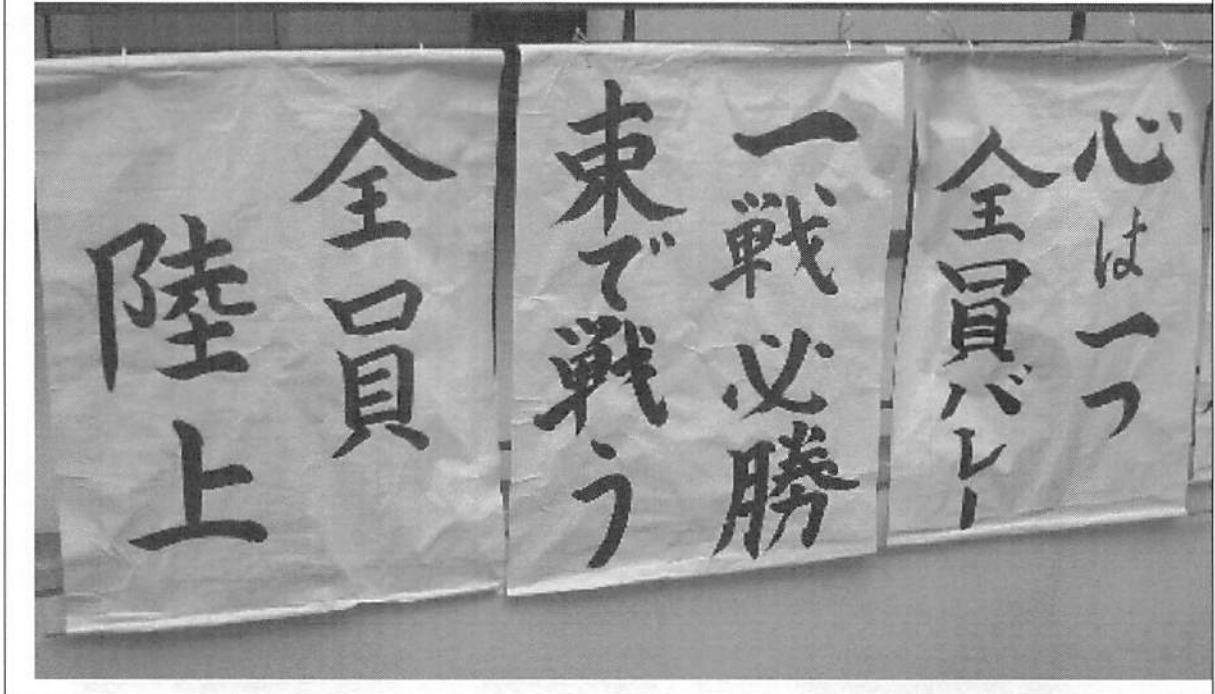 心は一つ
全員バレー
一戦必勝
束で戦う
全員
陸上